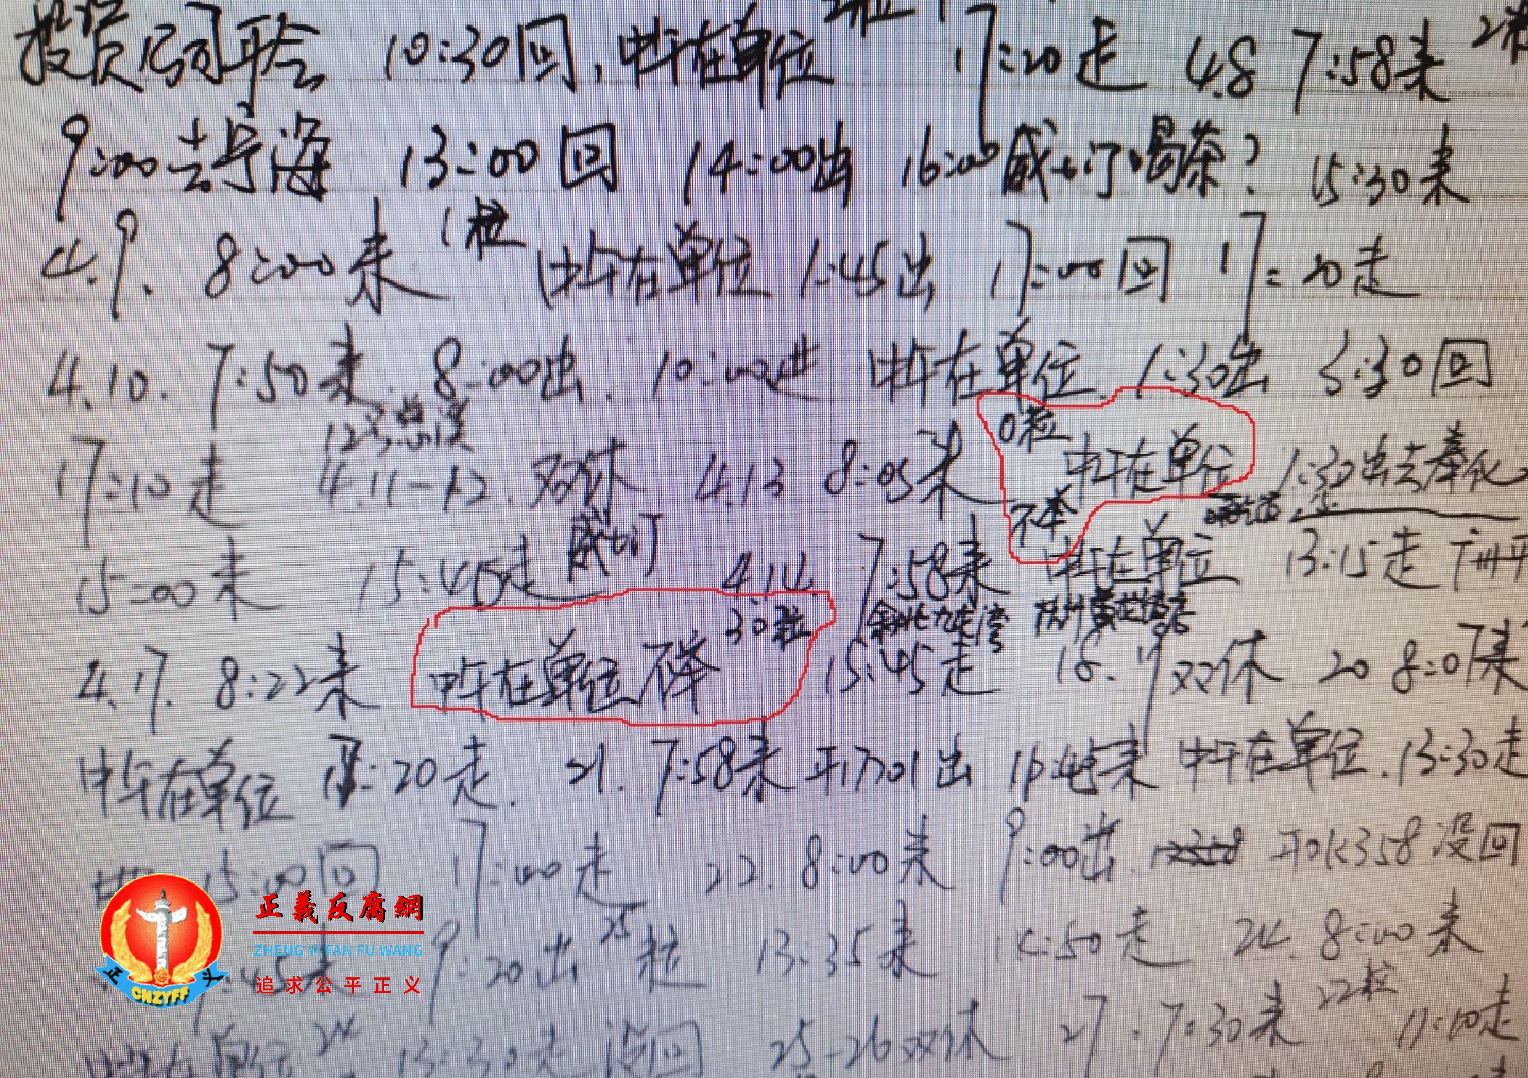 投资公司开会 10:30回,中午在单位 17:20走 4.8 7:58来
9:00去宁海 13:00回 14:00出 16:00威士汀喝茶? 15:30来
4.9. 8:00来 1粒 中午在单位 1:45出 17:00回 17:20走
4.10. 7:50来. 8:00出. 10:00进 中午在单位. 1:30出 3:30回
17:10走 4.11-12.双休 4.13 8:05来 0粒 不举 中午在单位 1:30出去奉化
15:00来 15:45走 威士汀 4.14 7:58来 中午在单位 13:15走
4.17. 8:22来 中午在单位不举 30粒 15:45走 18.19双休 20 8:07来
中午在单位 17:20走. 21. 7:58来 出 来 中午在单位.13:30走
15:00回 17:00走 22. 8:00来 9:00出 开0K358没回
9:20出 25粒 13:35来 走 24. 8:00来
单位 24 13:30走 没回 25-26双休 27. 7:30来 22粒 走
正義反腐網
ZHENG YI FAN FU WANG
追求公平正义
正 义
CNZYFF